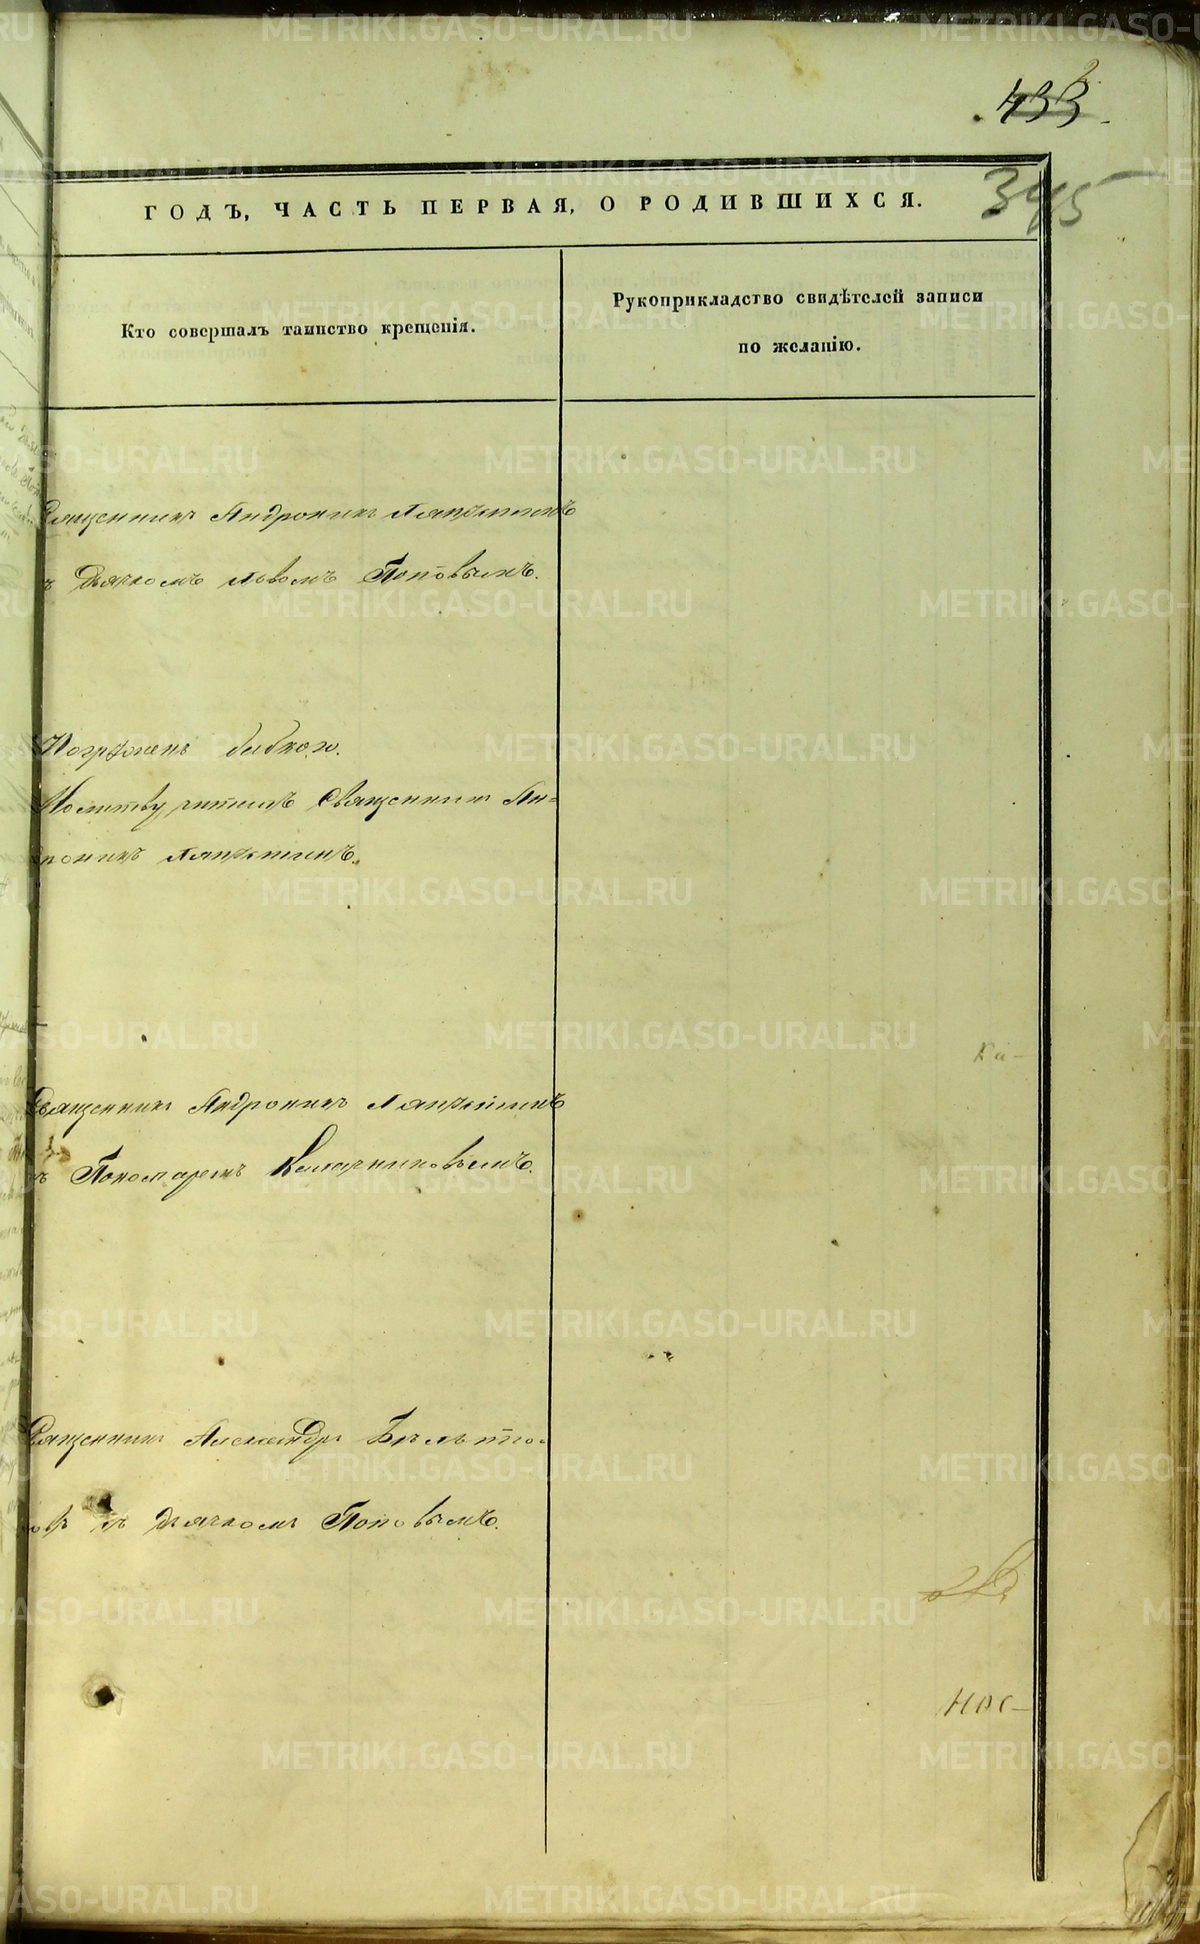 433
345
ГОДЪ, ЧАСТЬ ПЕРВАЯ, О РОДИВШИХСЯ.
Кто совершалъ таинство крещенія.
Рукоприкладство свидѣтелей записи
по желанію.
Священникъ Андроникъ Ляпустинъ
съ Дьячкомъ Львомъ Поповымъ.
Погруженъ бабкою.
Молитву читалъ Священникъ Ан-
дроникъ Ляпустинъ.
Священникъ Андроникъ Ляпустинъ
съ Пономаремъ
Священникъ Александръ
съ Дьячкомъ Поповымъ.
METRIKI.GASO-URAL.RU